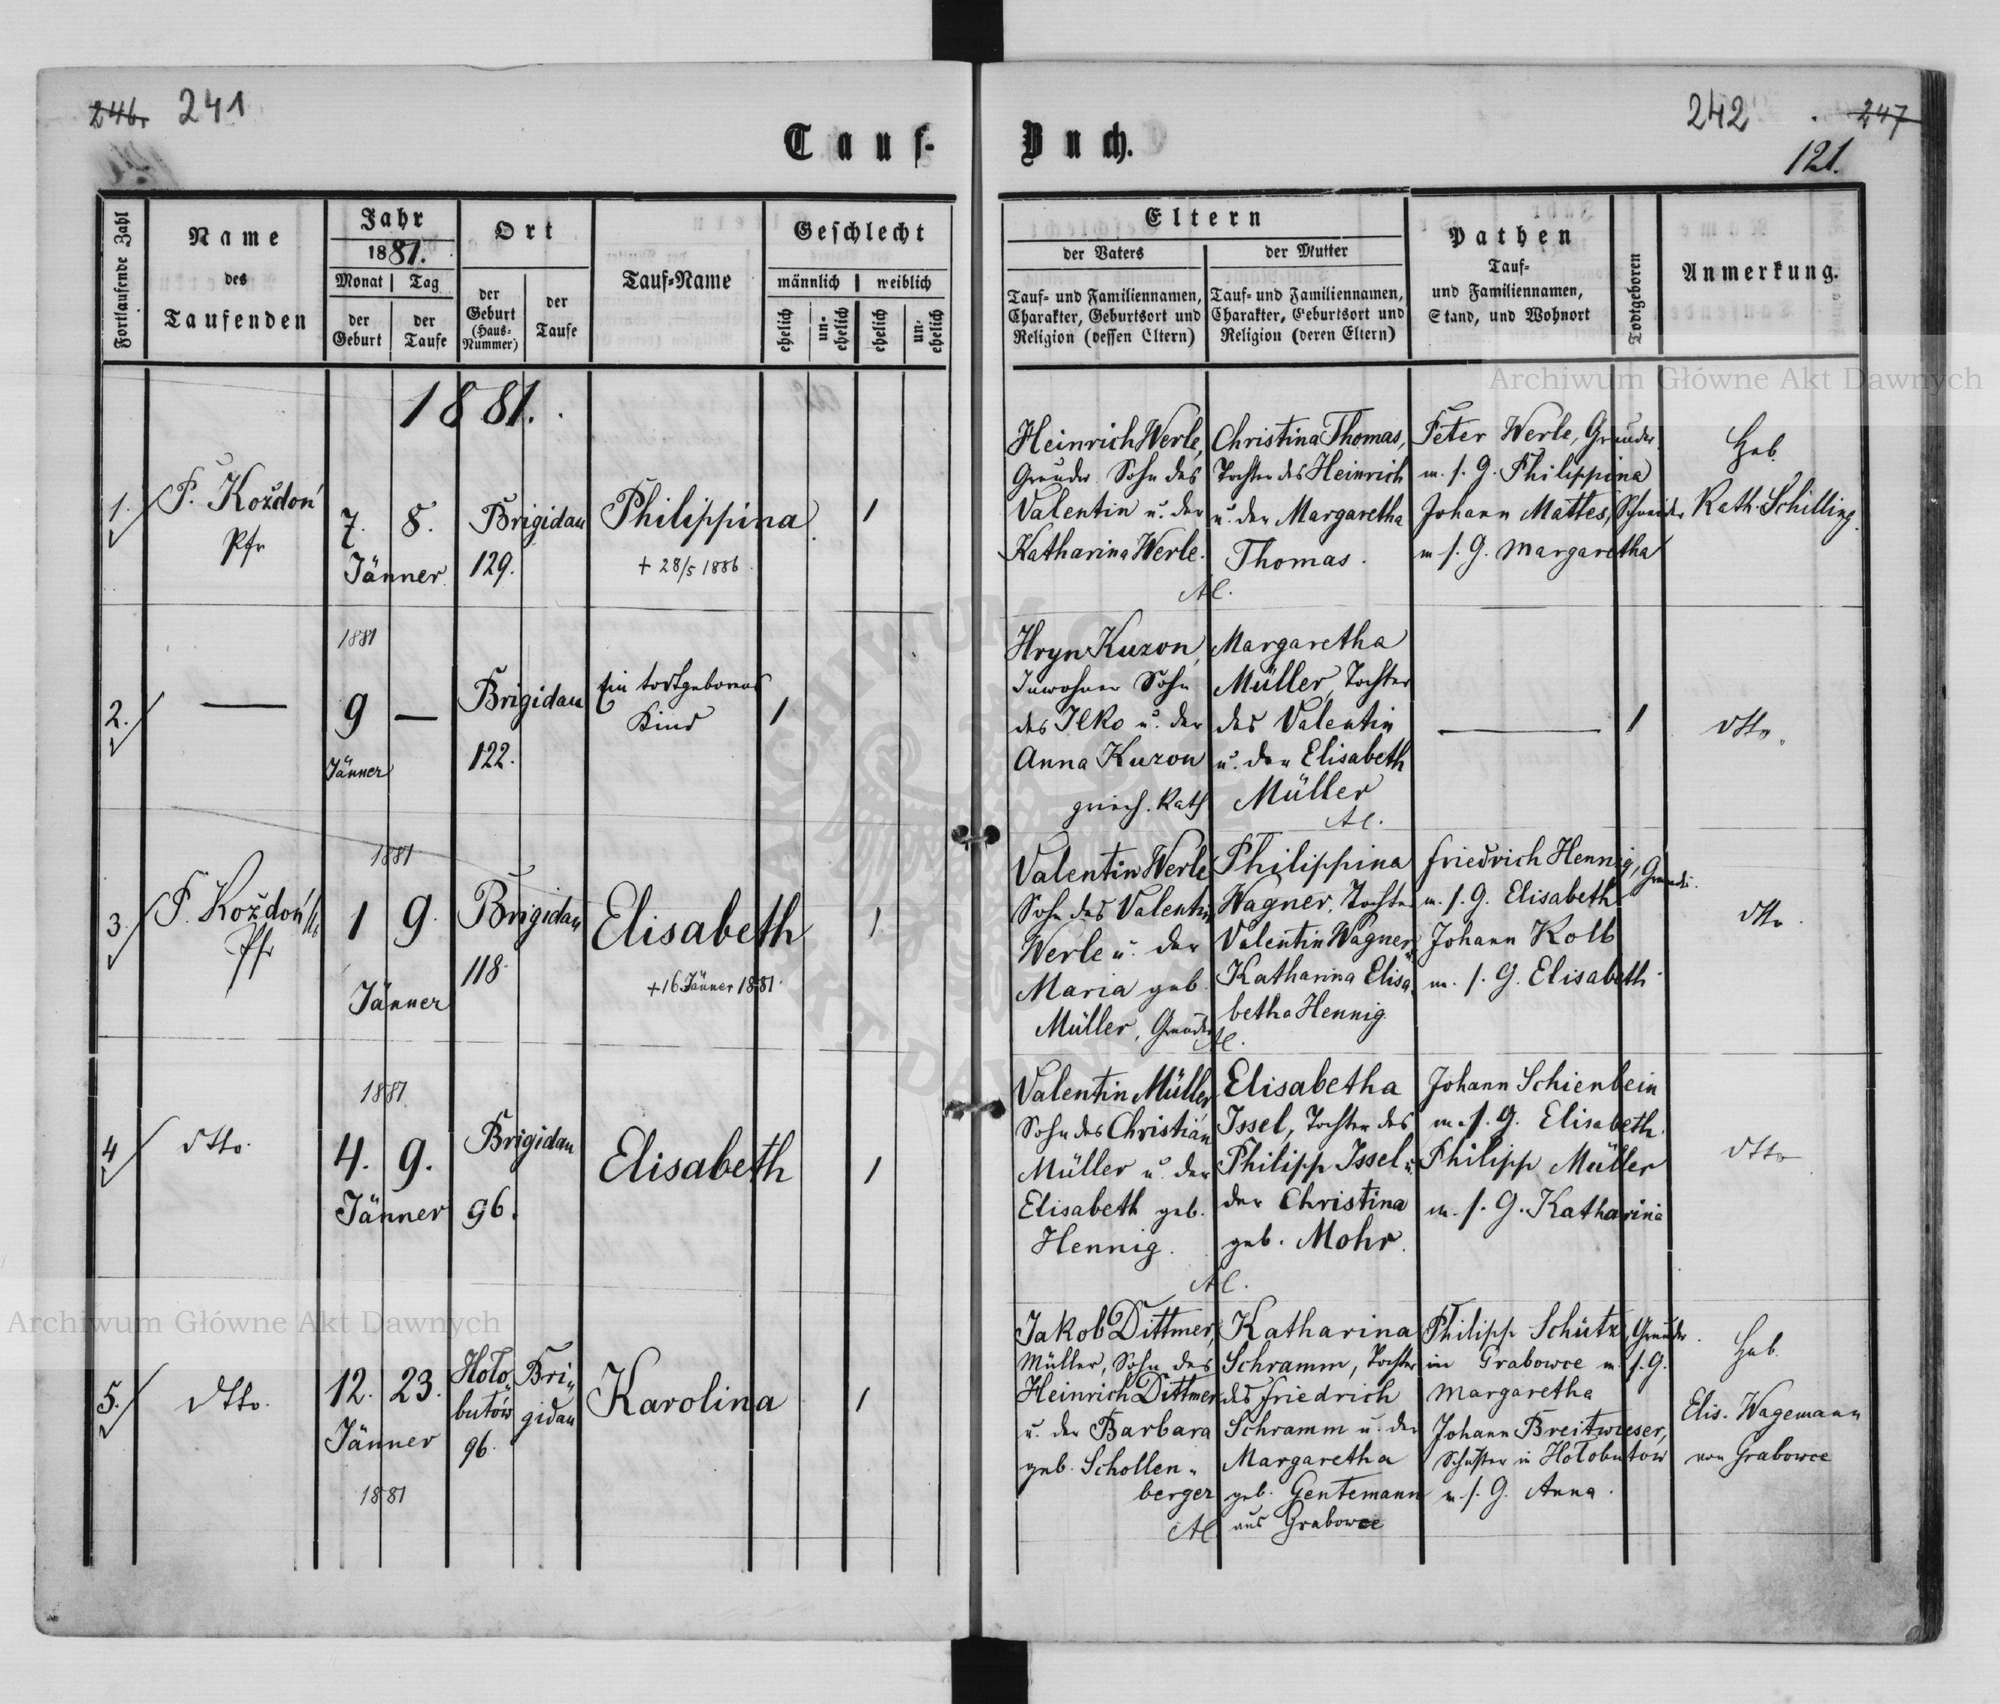 246. 241
242 247
121.
Tauf-
Buch.
Fortlaufende Zahl
Name
des
Taufenden
Jahr
1881.
Monat Tag
der Geburt
der Taufe
Ort
der Geburt (Haus-Nummer)
der Taufe
Tauf-Name
Geschlecht
männlich weiblich
ehelich un-ehelich ehelich un-ehelich
Eltern
der Vaters
der Mutter
Tauf- und Familiennamen,
Charakter, Geburtsort und
Religion (dessen Eltern)
Tauf- und Familiennamen,
Charakter, Geburtsort und
Religion (deren Eltern)
Pathen
Tauf-
und Familiennamen,
Stand, und Wohnort
Todtgeboren
Anmerkung.
Archiwum Główne Akt Dawnych
1881.
1.
F. Koždoń
Pfr
7. 8.
Jänner
Brigidau
129.
Philippina
+ 28/5 1886
1
Heinrich Werle,
Grundr. Sohn des
Valentin u. der
Katharina Werle.
Christina Thomas,
Tochter des Heinrich
u. der Margaretha
Thomas.
AC.
Peter Werle, Grundr.
m. s. G. Philippina
Johann Mattes, Schneider
m s. G. Margaretha
Heb.
Kath. Schilling.
1881
2.
—
9 —
Jänner
Brigidau
122.
Ein todtgeborenes
Kind
1
Hryn Kuzon,
Inwohner Sohn
des Ilko u. der
Anna Kuzon
griech. Kath
Margaretha
Müller, Tochter
des Valentin
u. der Elisabeth
Müller
AC.
—
1
dtto.
1881
3.
F. Koždoń
Pfr
1 9.
Jänner
Brigidau
118.
Elisabeth
+ 16 Jänner 1881.
1
Valentin Werle
Sohn des Valentin
Werle u. der
Maria geb.
Müller, Grundr
Philippina
Wagner, Tochter
Valentin Wagner u.
Katharina Elisa-
betha Hennig
AC.
Friedrich Hennig, Grundr.
m. s. G. Elisabeth
Johann Kolb
m. s. G. Elisabeth
dtto.
1881
4
dtto.
4. 9.
Jänner
Brigidau
96.
Elisabeth
1
Valentin Müller,
Sohn des Christian
Müller u. der
Elisabeth geb.
Hennig.
Elisabetha
Issel, Tochter des
Philipp Issel u.
der Christina
geb. Mohr.
AC.
Johann Schienbein
m. s. G. Elisabeth.
Philipp Müller
m. s. G. Katharina
dtto
5.
dtto.
12. 23.
Jänner
1881
Holo-
butów
96.
Bri-
gidau
Karolina
1
Jakob Dittmer,
Müller, Sohn des
Heinrich Dittmer
u. der Barbara
geb. Schollen-
berger
AC
Katharina
Schramm, Tochter
des Friedrich
Schramm u. der
Margaretha
geb. Gentemann
aus Grabowce
Philipp Schütz, Grundr.
in Grabowce m. s. G.
Margaretha
Johann Breitwieser,
Schuster in Holobutow
m. s. G. Anna.
Heb.
Elis. Wagemann
von Grabowce
Archiwum Główne Akt Dawnych
ARCHIWUM GŁÓWNE AKT DAWNYCH